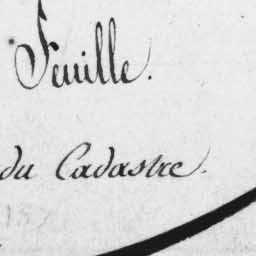 Feuille.
du Cadastre.